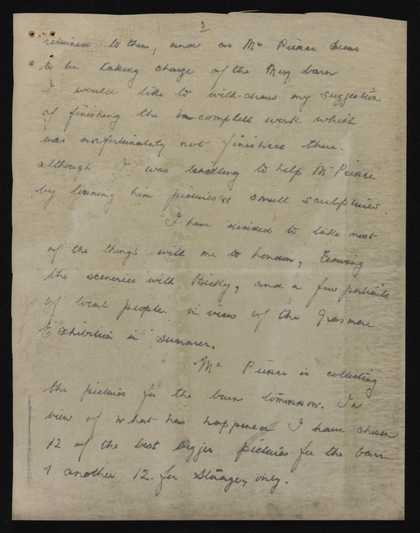 2
to them, and as Mr Pierce seems
to be taking charge of the Merz barn
I would like to with-draw my suggestion
of finishing the in-complete work which
was unfortunately not finished then.
although I was willing to help Mr Pierce
by loaning him pictures & small sculptures.
I have decided to take most
of the things with me to London, leaving
the sceneries with Bickly, and a few portraits
of local people in view of the Grasmere
Exhibition in summer.
Mr Pierce is collecting
the pictures for the barn tomorrow. In
view of what has happened I have chosen
12 of the best bigger pictures for the barn
& another 12 for storage, only.